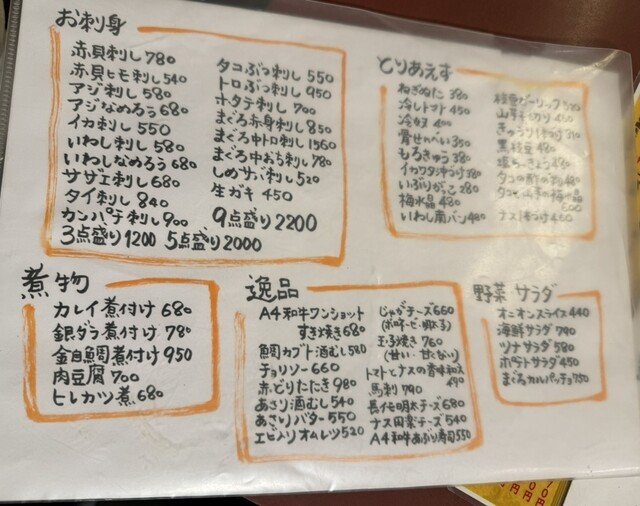 お刺身
赤貝刺し 780
赤貝ヒモ刺し 540
アジ刺し 580
アジなめろう 680
イカ刺し 550
いわし刺し 580
いわしなめろう 680
サザエ刺し 680
タイ刺し 840
カンパチ刺し 900
3点盛り 1200 5点盛り 2000
タコぶつ刺し 550
トロぶつ刺し 950
ホタテ刺し 700
まぐろ赤身刺し 850
まぐろ中トロ刺し 1560
まぐろ中おち刺し 780
しめサバ刺し 520
生ガキ 450
9点盛り 2200
とりあえず
ねぎぬた 380
冷しトマト 450
冷奴 400
骨せんべい 350
もろきゅう 380
イカワタ沖うけ 360
いぶりがっこ 280
梅水晶 480
いわし南バン 480
枝豆ガーリック
山芋千切り
きゅうり
黒枝豆 480
塩らっきょう 480
タコと山芋の梅水晶
600
ナス 460
煮物
カレイ煮付け 680
銀ダラ煮付け 780
金目鯛煮付け 950
肉豆腐 700
ヒレカツ煮 680
逸品
A4和牛ワンショット
すき焼き 680
鯛カブト酒むし 580
チョリソー 660
赤どりたたき 980
あさり酒むし 540
あさりバター 550
エビ入りオムレツ 520
じゃがチーズ 660
玉子焼き 760
(甘い・甘くない)
トマトとナスの香味和え
490
馬刺 790
長イモ明太チーズ 680
ナス田楽チーズ 540
A4和牛あぶり寿司 550
野菜 サラダ
オニオンスライス 440
海鮮サラダ 790
ツナサラダ 580
ポテトサラダ 450
まぐろカルパッチョ